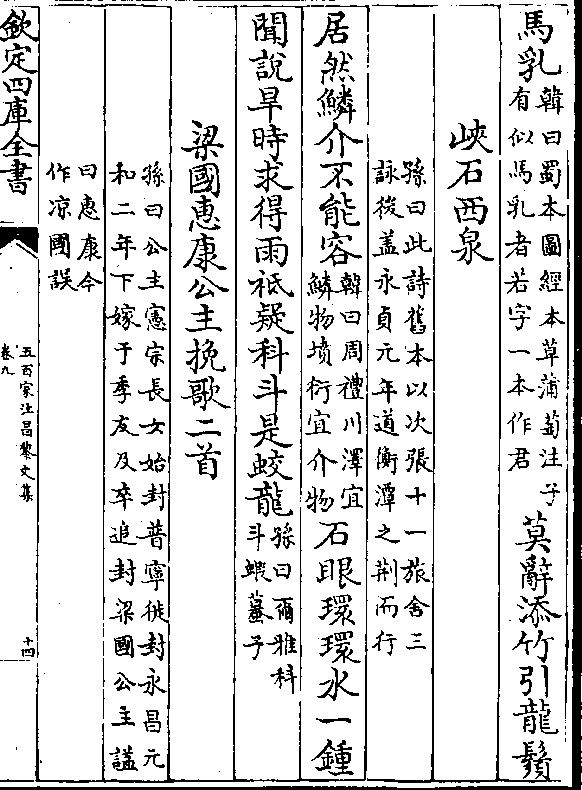 馬乳韓曰蜀本圖經本草蒲萄注子有似馬乳者若字一本作君莫辭添竹引龍鬚
峽石西泉
孫曰此詩舊本以次張十一旅舍三
詠後蓋永貞元年道衡潭之荆而行
居然鱗介不能容韓曰周禮川澤宜鱗物墳衍宜介物石眼環環水一鍾
聞說旱時求得雨祗疑科斗是蛟龍孫曰爾雅科斗蝦蟇子
梁國惠康公主挽歌二首
孫曰公主憲宗長女始封普寧徙封永昌元
和二年下嫁于季友及卒追封梁國公主諡
曰惠康今
作凉國誤
欽定四庫全書
五百家注昌黎文集
卷九
十四